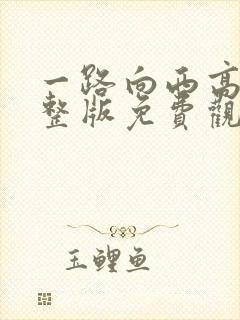 一路向西高
整版免費觀
玉鲤鱼